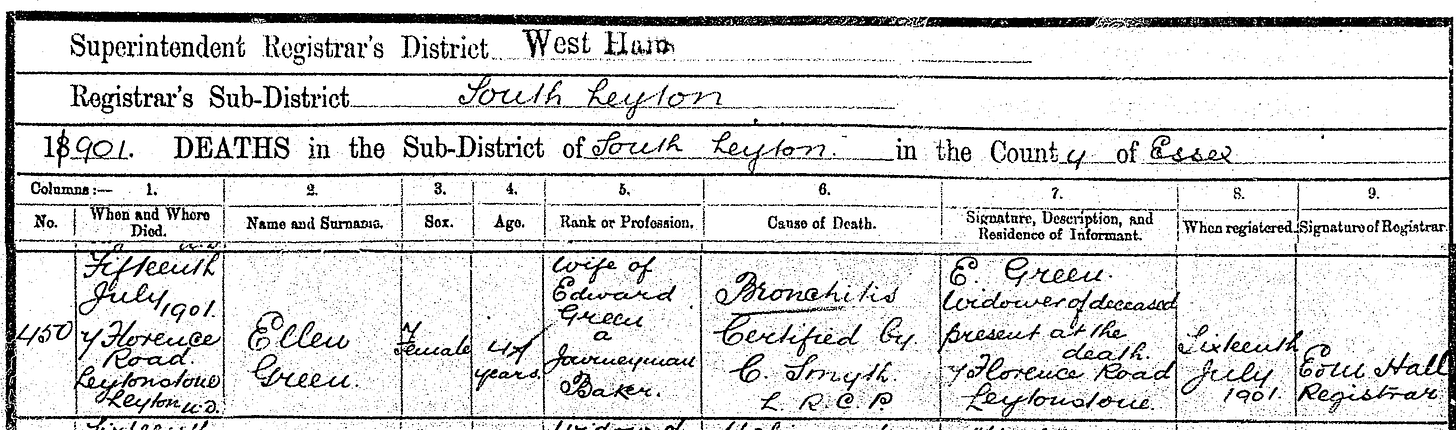 Superintendent Registrar's District West Ham
Registrar's Sub-District South Leyton
18901. DEATHS in the Sub-District of South Leyton. in the County of Essex
Columns:— 1. 2. 3. 4. 5. 6. 7. 8. 9.
No. When and Where Died. Name and Surname. Sex. Age. Rank or Profession. Cause of Death. Signature, Description, and Residence of Informant. When registered. Signature of Registrar.
450
Fifteenth
July 1901.
7 Florence
Road
Leytonstone
Leyton u.d.
Ellen
Green.
Female
years.
Wife of
Edward
Green
a
Journeyman
Baker.
Bronchitis
Certified by
C. Smyth.
L.R.C.P.
E. Green.
Widower of deceased
present at the
death.
7 Florence Road
Leytonstone.
Sixteenth
July
1901.
Hall
Registrar.
Sixteenth